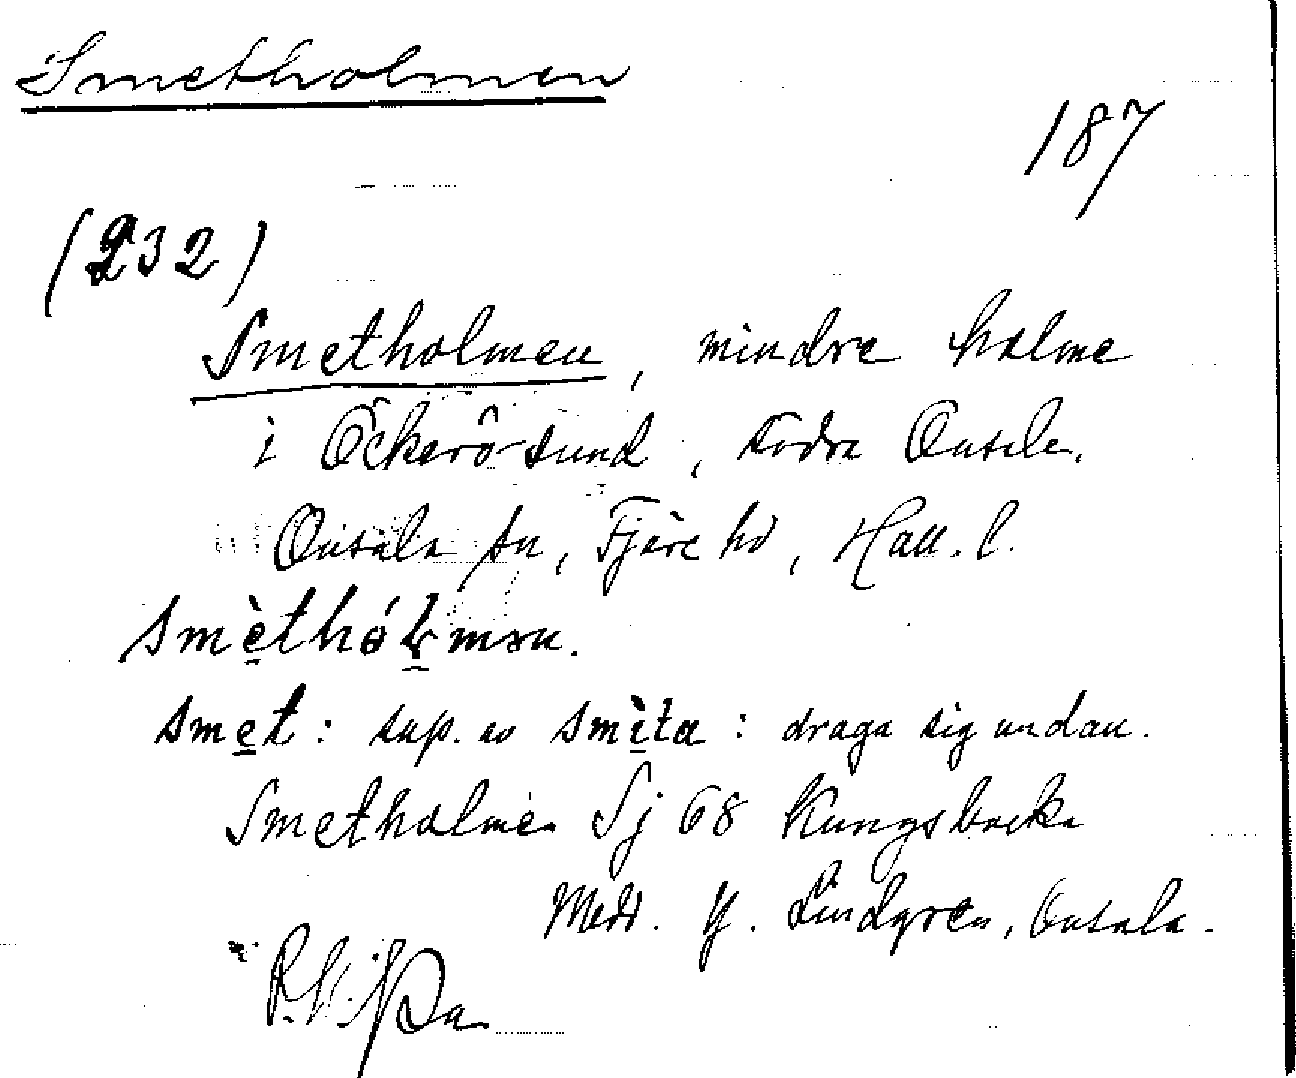 Smetholmen
187
(232)
Smetholmen, mindre holme
i Öckerö sund, södra Onsala.
Onsala sn, Fjäre hd, Hall. l.
smèthólmən.
smet: sup. av smìta: draga sig undan.
Smetholmen Sj 68 Kungsbacka
Medd. Y. Lindgren, Onsala.